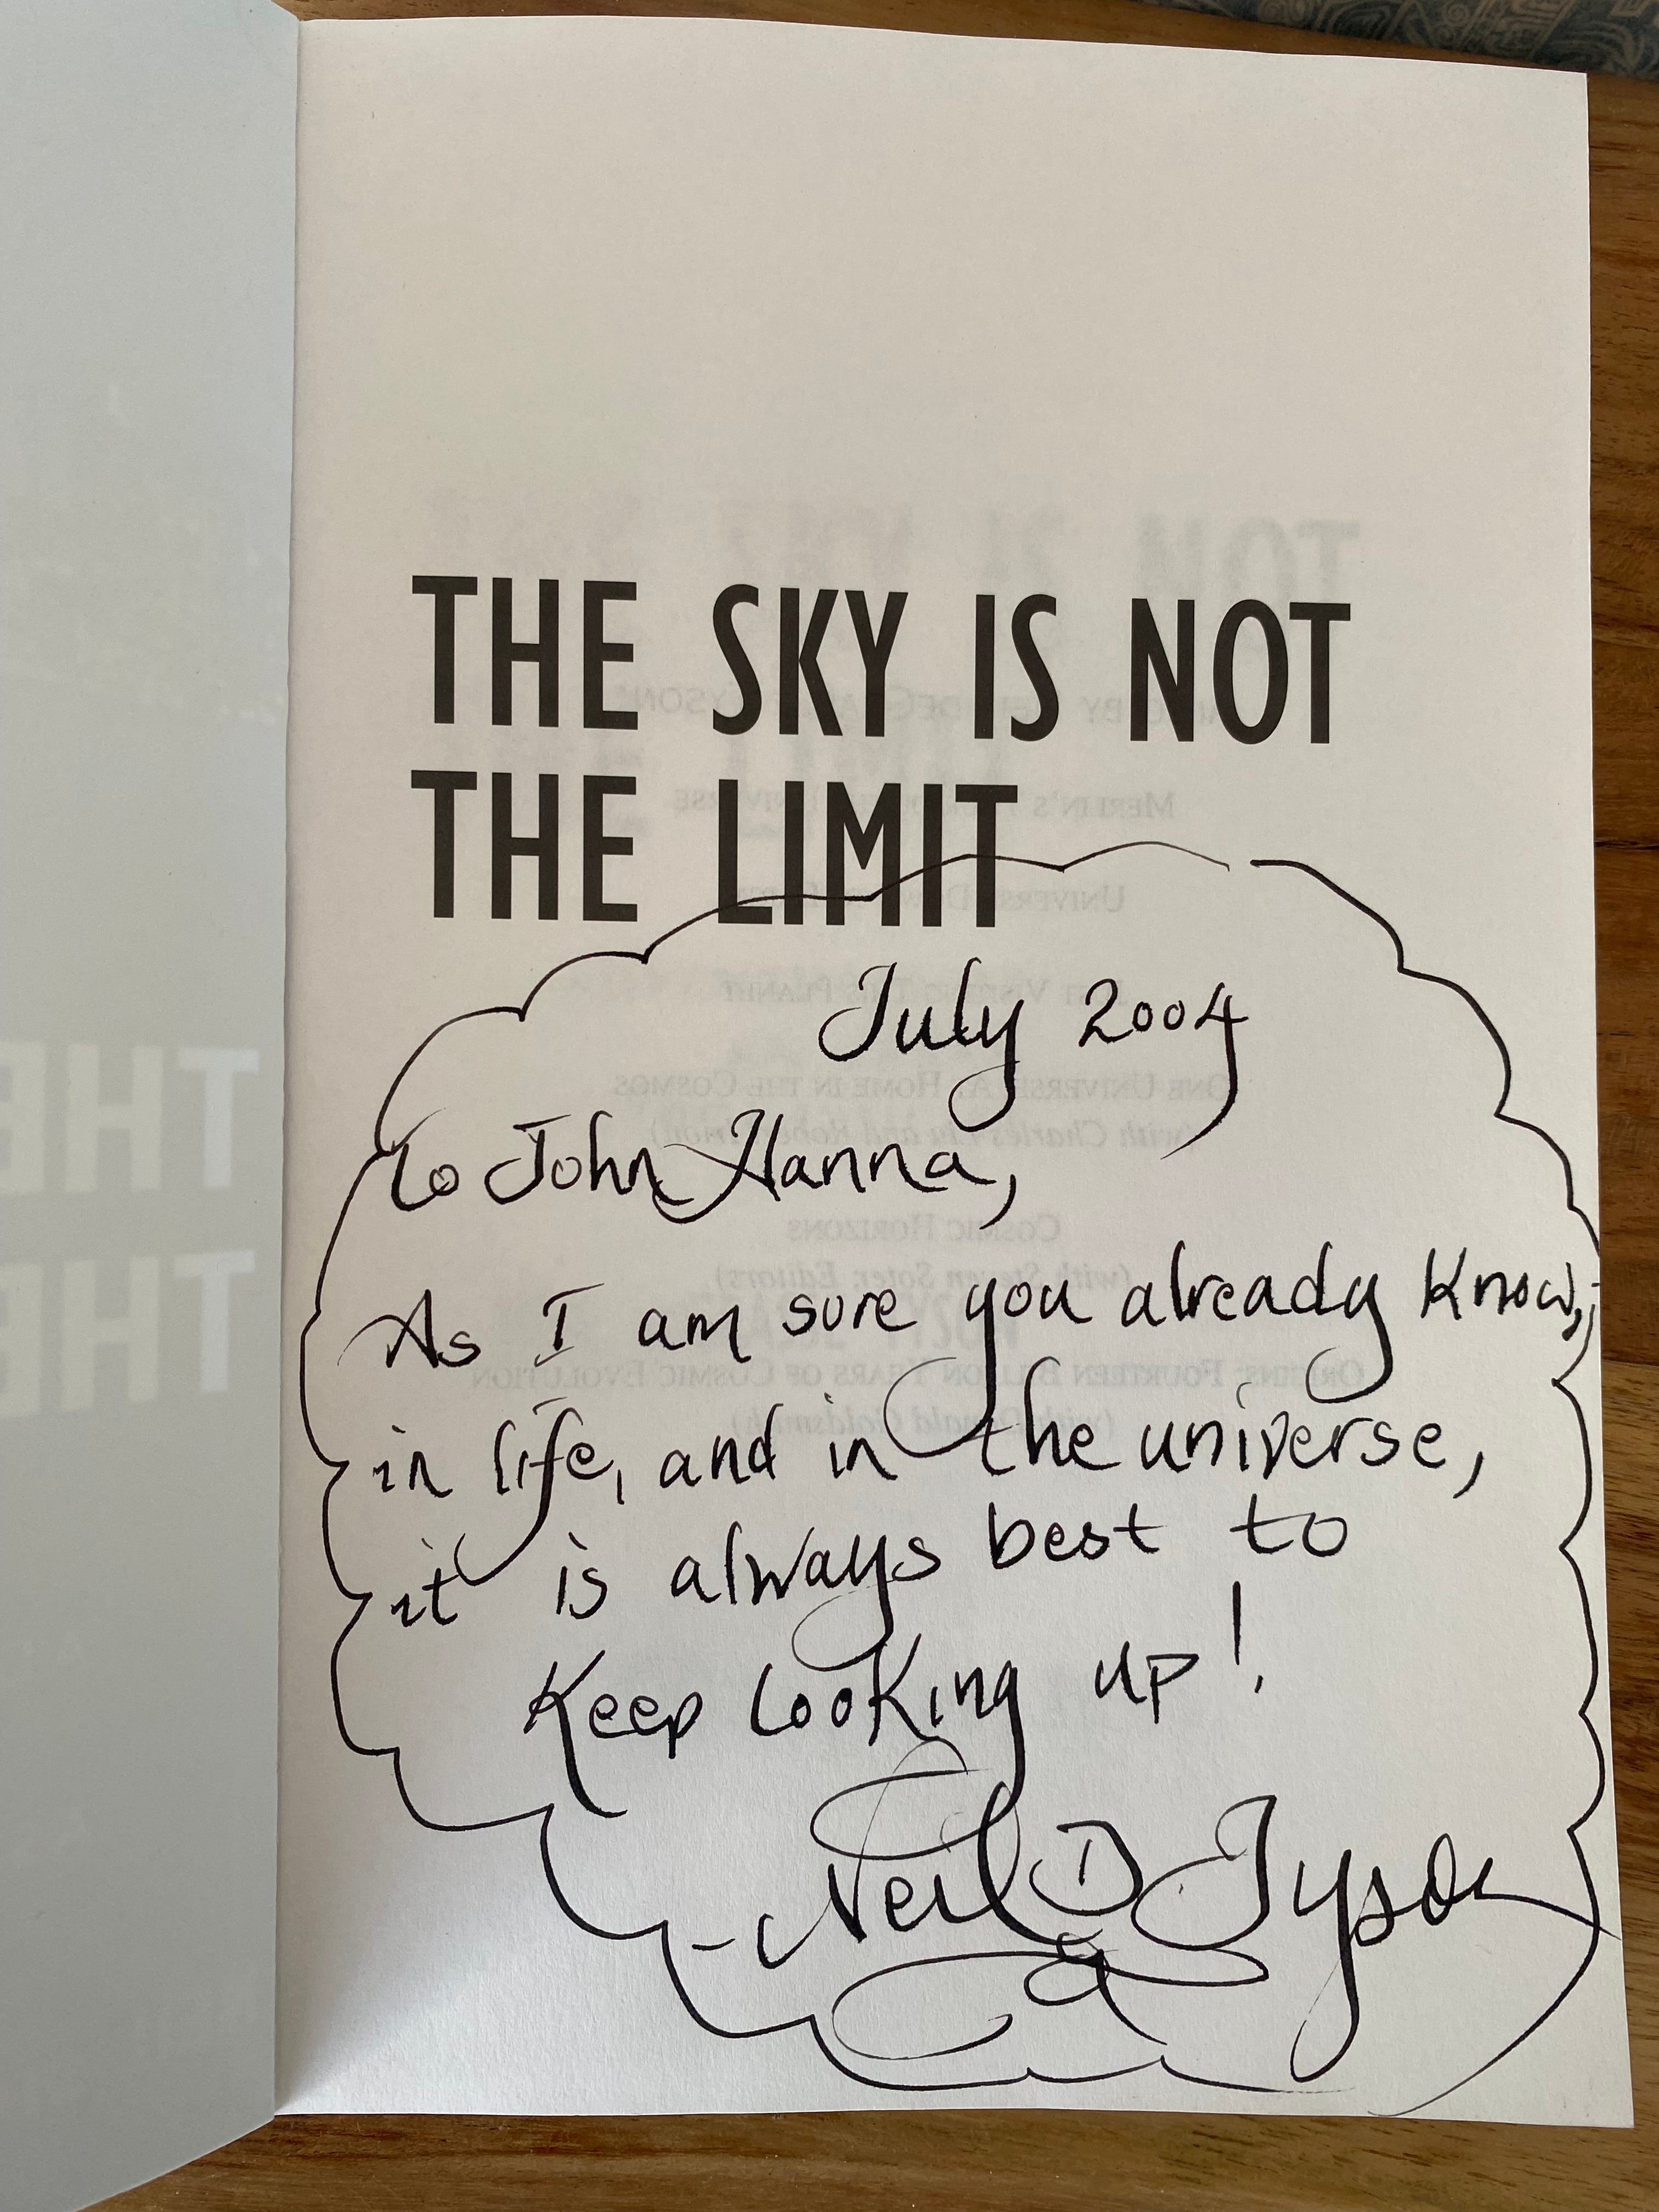 THE SKY IS NOT
THE LIMIT
July 2004
To John Hanna,
As I am sure you already know,
in life, and in the universe,
it is always best to
Keep looking up!
- Neil D Tyson